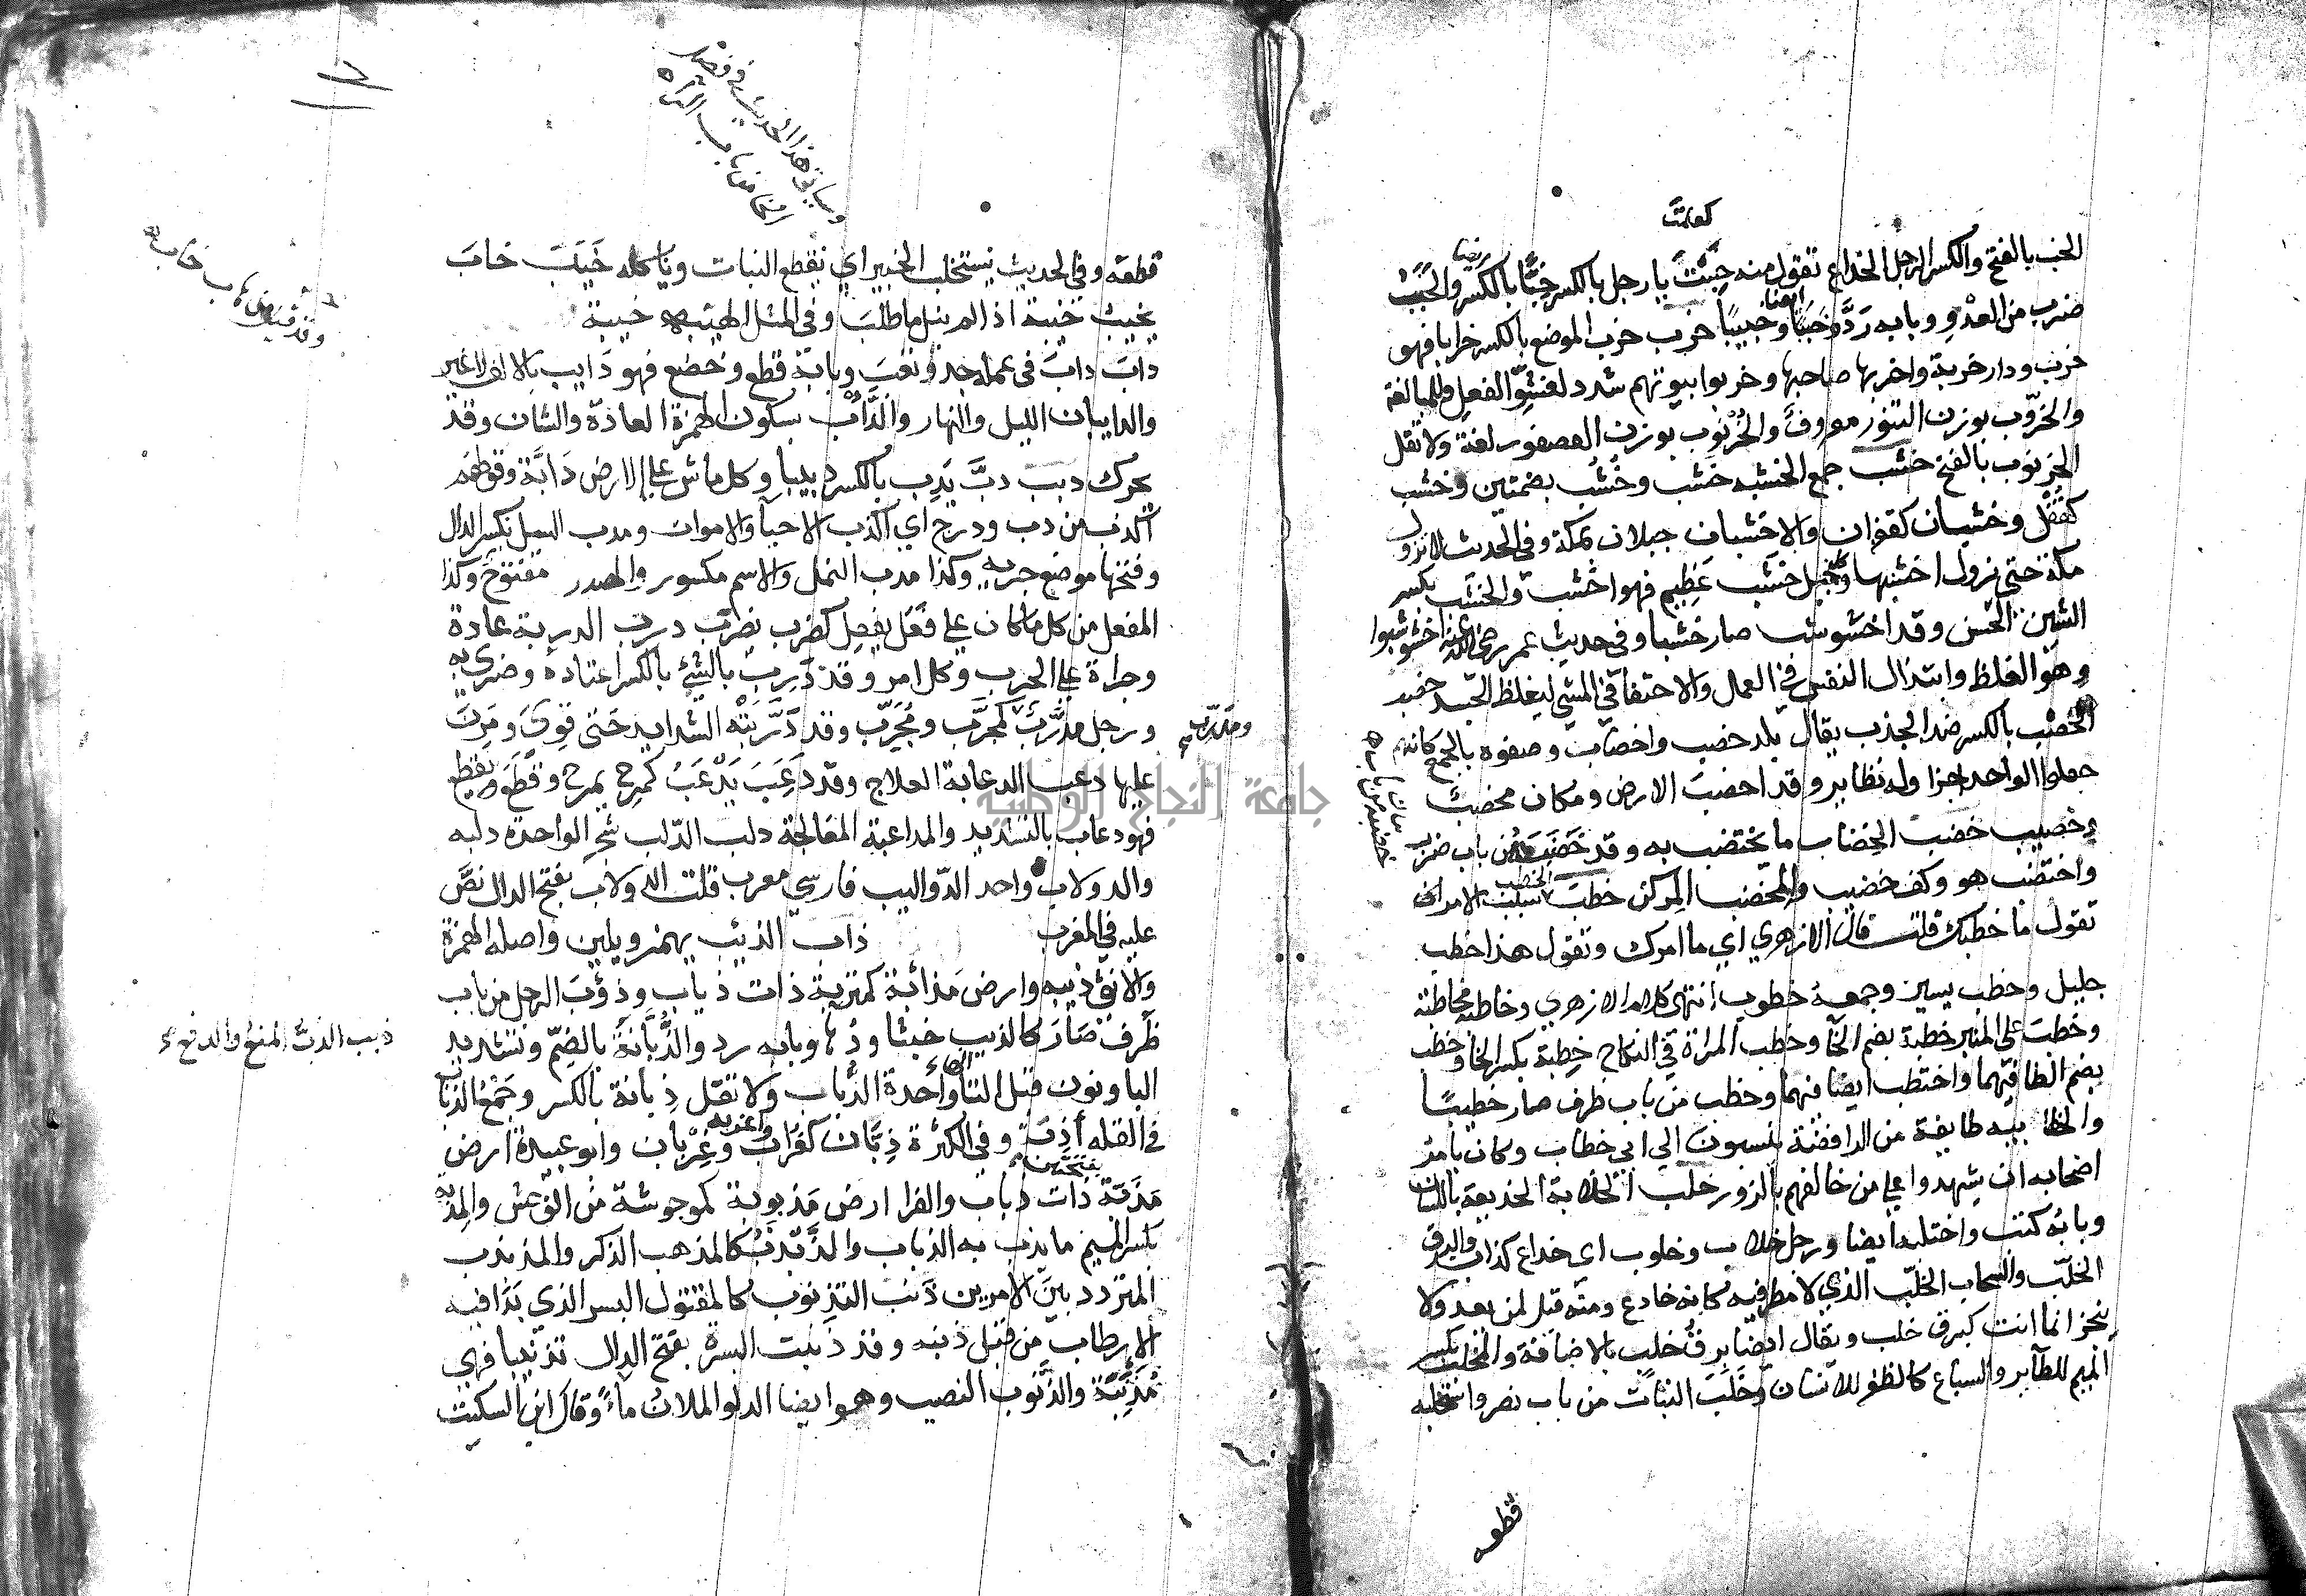 كعلمت
الخب بالفتح والكسر الرجل الخداع تقول منه خببت يا رجل بالكسر خبا بالكسر والخبب
ايضا
ضرب من العدو وبابه رد وخببا وخبيبا خرب خرب الموضع بالكسر خرابا فهو
خرب ودار خربة واخربها صاحبها وخربوا بيوتهم شدد لفشو الفعل وللمبالغة
والخروب بوزن التنور معروف والخرنوب بوزن العصفور لغة ولا تقل
الخرنوب بالفتح خشب جمع الخشبه خشب وخشب بضمتين وخشب
كقفل وخشبان كقفزان والاخشبان جبلان بمكة وفي الحديث لا تزول
مكة حتى نزول اخشبها وكل جبل خشب عظيم فهو اخشب والخشب بكسر
الشين الخشن وقد اخشوشب صار خشبا وفي حديث عمر رضي الله عنه اخشوشبوا
وهو الغلظ وابتذال النفس في العمل والاحتفا في المشي ليغلظ الجسد خصب
الخصب بالكسر ضد الجذب يقال بلد خصيب واخصاب وصفوه بالجمع كانهم
جعلوا الواحد اجزا وله نظاير وقد اخصبت الارض ومكان مخصب
وخصيب خضب الخضاب ما يختضب به وقد خضبه من باب ضرب
واختضب هو وكف خضيب والمخضب المركن خطب الخطب سبب الامر اى
تقول ما خطبك قلت قال الازهري اي ما امرك وتقول هذا خطب
جليل وخطب يسير وجمعه خطوب انتهى كلام الازهري وخاطبه مخاطبة
وخطب على المنبر خطبة بضم الخا وخطب المراة في النكاح خطبة بكسر الخا وخطب
بضم الطا فيهما واختطب ايضا فيهما وخطب من باب ظرف صار خطيبا
والخطابيه طايفة من الرافضة ينسبون الى ابى خطاب وكان يامر
اصحابه ان يشهدوا على من خالفهم بالزور خلب الخلابة الخديعة باللسان
وبابه كتب واختلبه ايضا ورجل خلاب وخلوب اى خداع كذاب والبرق
الخلب والسحاب الخلب الذي لا مطر فيه كانه خادع ومنه قيل لمن يعد ولا
ينجز انما انت كبرق خلب ويقال ايضا برق خلب بالاضافة والمخلب بكسر
الميم للطاير والسباع كالظفر للانسان وخلب النبات من باب نصر واستخلبه
قطعه
وسياتي هذا الحديث في
قطعه وفي الحديث نستخلب الخبير اي نقطع النبات وناكله خيب خاب
يخيب خيبة اذا لم ينل ما طلب وفي المثل الهيبه خيبة
داب داب في عمله جد وتعب وبابه قطع وخضع فهو دايب بالالف لا غير
والدايبان الليل والنهار والداب بسكون الهمزة العادة والشان وقد
يحرك دبب دب يدب بالكسر دبيبا وكل ماش على الارض دابة وقولهم
اكذب من دب ودرج اي اكذب الاحيا والاموات ومدب السيل بكسر الدال
وفتحها موضع جريه وكذا مدب النمل والاسم مكسور والمصدر مفتوح وكذا
المفعل من كل ما كان على فعل يفعل كضرب يضرب درب الدربة عادة
وجراة على الحرب وكل امر وقد درب بالشئ بالكسر اعتاده وضرى به
ورجل مدرب كمجرب ومجرب وقد دربته الشدايد حتى قوى ومرن
عليها دعب الدعابة العلاج وقد دعب يدعب كمزح يمزح وقطع يقطع
فهو دعاب بالتشديد والمداعبة المعالجة دلب الدلب شجر الواحدة دلبه
والدولاب واحد الدواليب فارسي معرب قلت الدولاب بفتح الدال نص
عليه في المغرب ذاب الذيب يهمز ويلين واصله الهمزة
والانثى ذيبه وارض مذابة كمتربة ذات ذياب وذؤب الرجل من باب
ذبب الذب المنع والدفع
ظرف صار كالذيب خبثا ودها وبابه رد والذبانة بالضم وتشديد
البا ونون قبل التا واحدة الذباب ولا تقل ذبانة بالكسر وجمع الذباب
في القله اذبة وفي الكثرة ذبان كغراب واغربه وغربان وابو عبيدة ارض
بفتحتين
مذبة ذات ذباب والفرا ارض مذبوبة كموحوشة من الوحش والمذبه
بكسر الميم ما يذب به الذباب والذبذب كالمذهب الذكر والمذبذب
المتردد بين الامرين ذنب التذنوب كالمفتول البسر الذي بدا فيه
الارطاب من قبل ذنبه وقد ذنبت البسرة بفتح الدال تذنيبا فهي
مذنبة والذنوب النصيب وهو ايضا الدلو الملان ماء وقال ابن السكيت
جامعة النجاح الوطنية